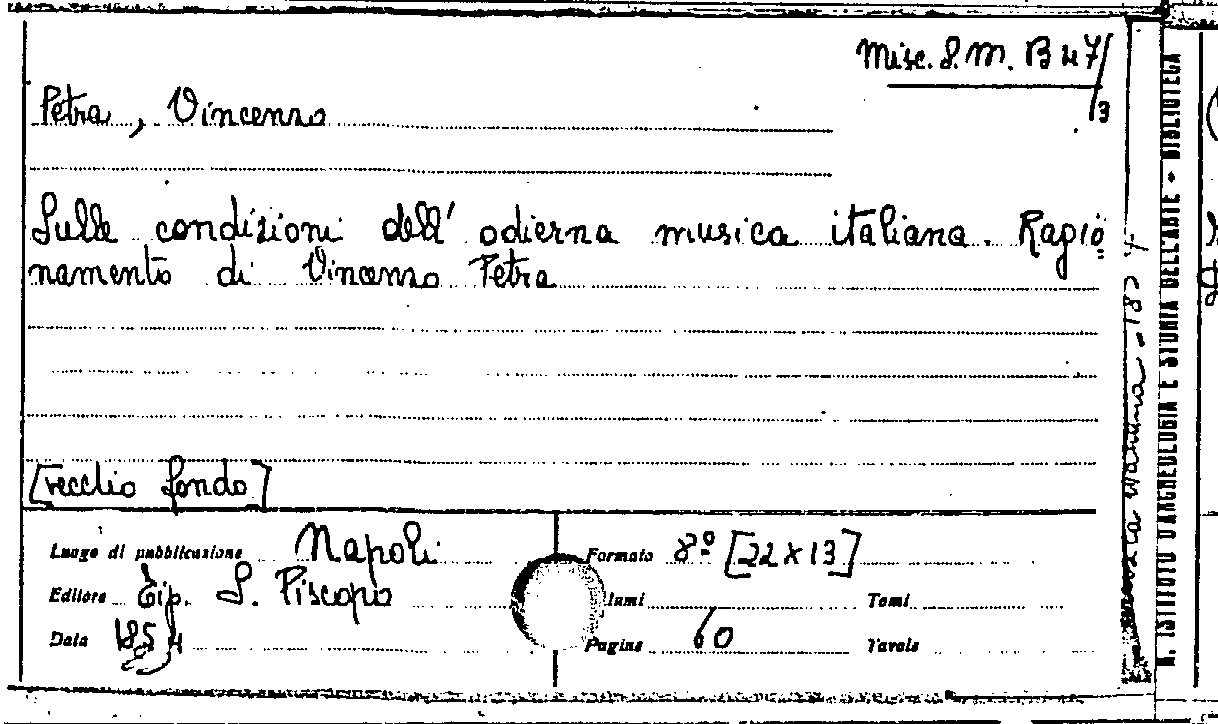 Misc. S. M. B 47/3
Petra, Vincenzo
Sulle condizioni dell' odierna musica italiana. Ragio=
namento di Vincenzo Petra
[vecchio fondo]
Luogo di pubblicazione Napoli
Formato 8º [22 x 13]
Editore Tip. S. Piscopo
lumi
Tomi
Data 1854
Pagine 60
Tavole
R. ISTITUTO D'ARCHEOLOGIA E STORIA DELL'ARTE - BIBLIOTECA